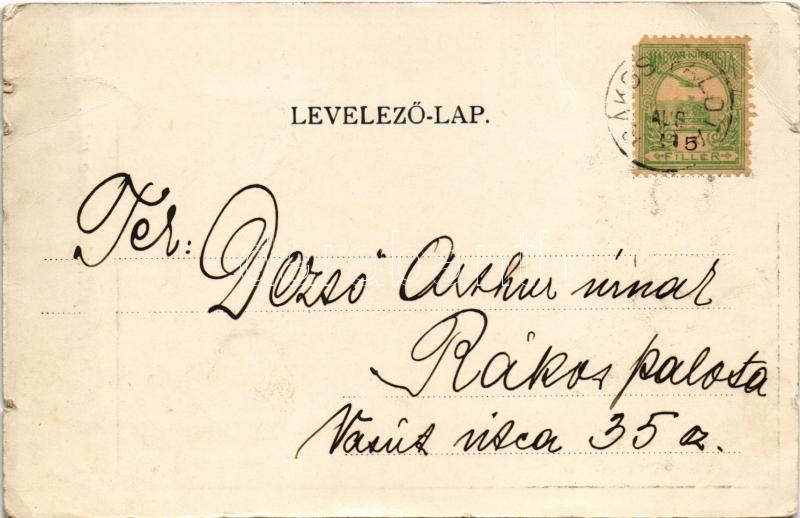 MAGYAR KIR. POSTA
RÁKOSPALOTA
AUG
5
FILLÉR
LEVELEZŐ-LAP.
Tek:
Dezső Arthur úrnak
Rákos palota
Vasút utca 35 sz.